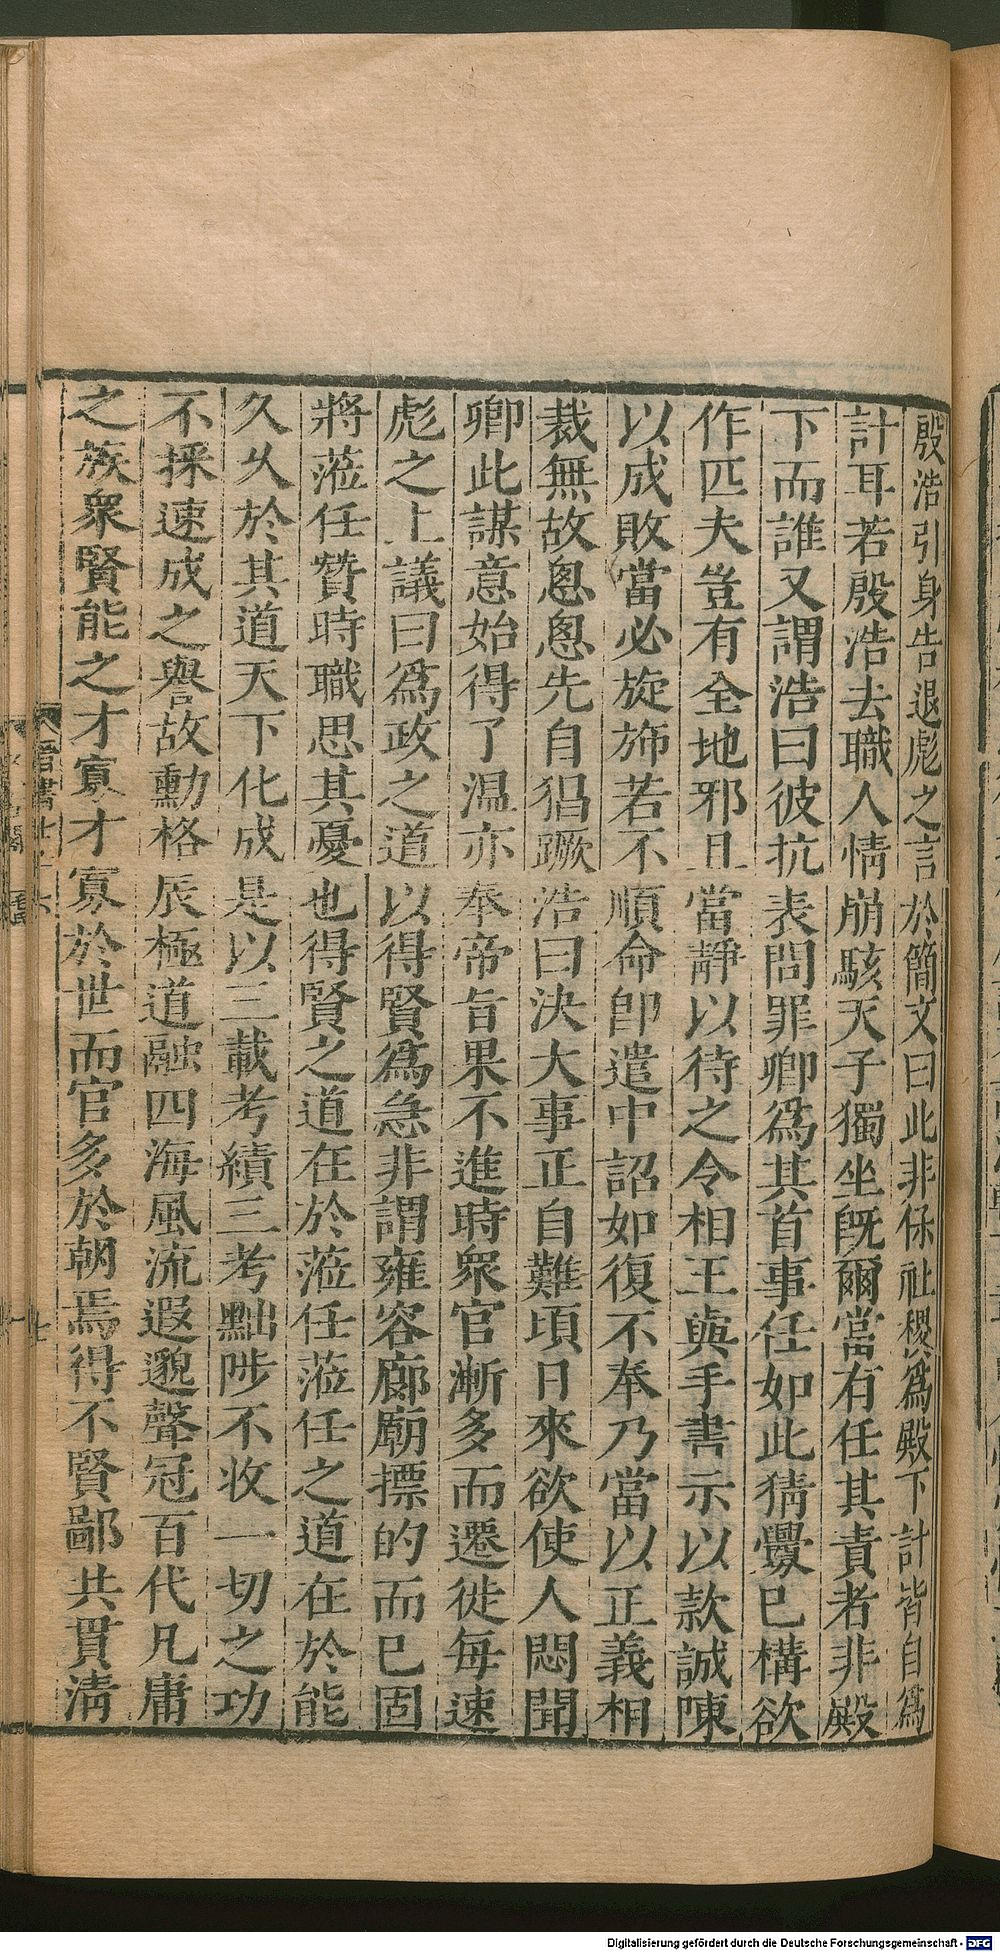 殷浩引身告退彪之言於簡文曰此非保社稷爲殿下計皆自爲
計耳若殷浩去職人情崩駭天子獨坐旣爾當有任其責者非殿
下而誰又謂浩曰彼抗表問罪卿爲其首事任如此猜釁已構欲
作匹夫豈有全地邪且當靜以待之令相王與手書示以款誠陳
以成敗當必旋斾若不順命卽遣中詔如復不奉乃當以正義相
裁無故悤悤先自猖蹶浩曰決大事正自難頃日來欲使人悶聞
卿此謀意始得了溫亦奉帝旨果不進時衆官漸多而遷徙每速
彪之上議曰爲政之道以得賢爲急非謂雍容廊廟摽的而已固
將蒞任贊時職思其憂也得賢之道在於蒞任蒞任之道在於能
久久於其道天下化成是以三載考績三考黜陟不收一切之功
不採速成之譽故勳格辰極道融四海風流遐邈聲冠百代凡庸
之族衆賢能之才寡才寡於世而官多於朝焉得不賢鄙共貫淸
晉書
Digitalisierung gefördert durch die Deutsche Forschungsgemeinschaft - DFG